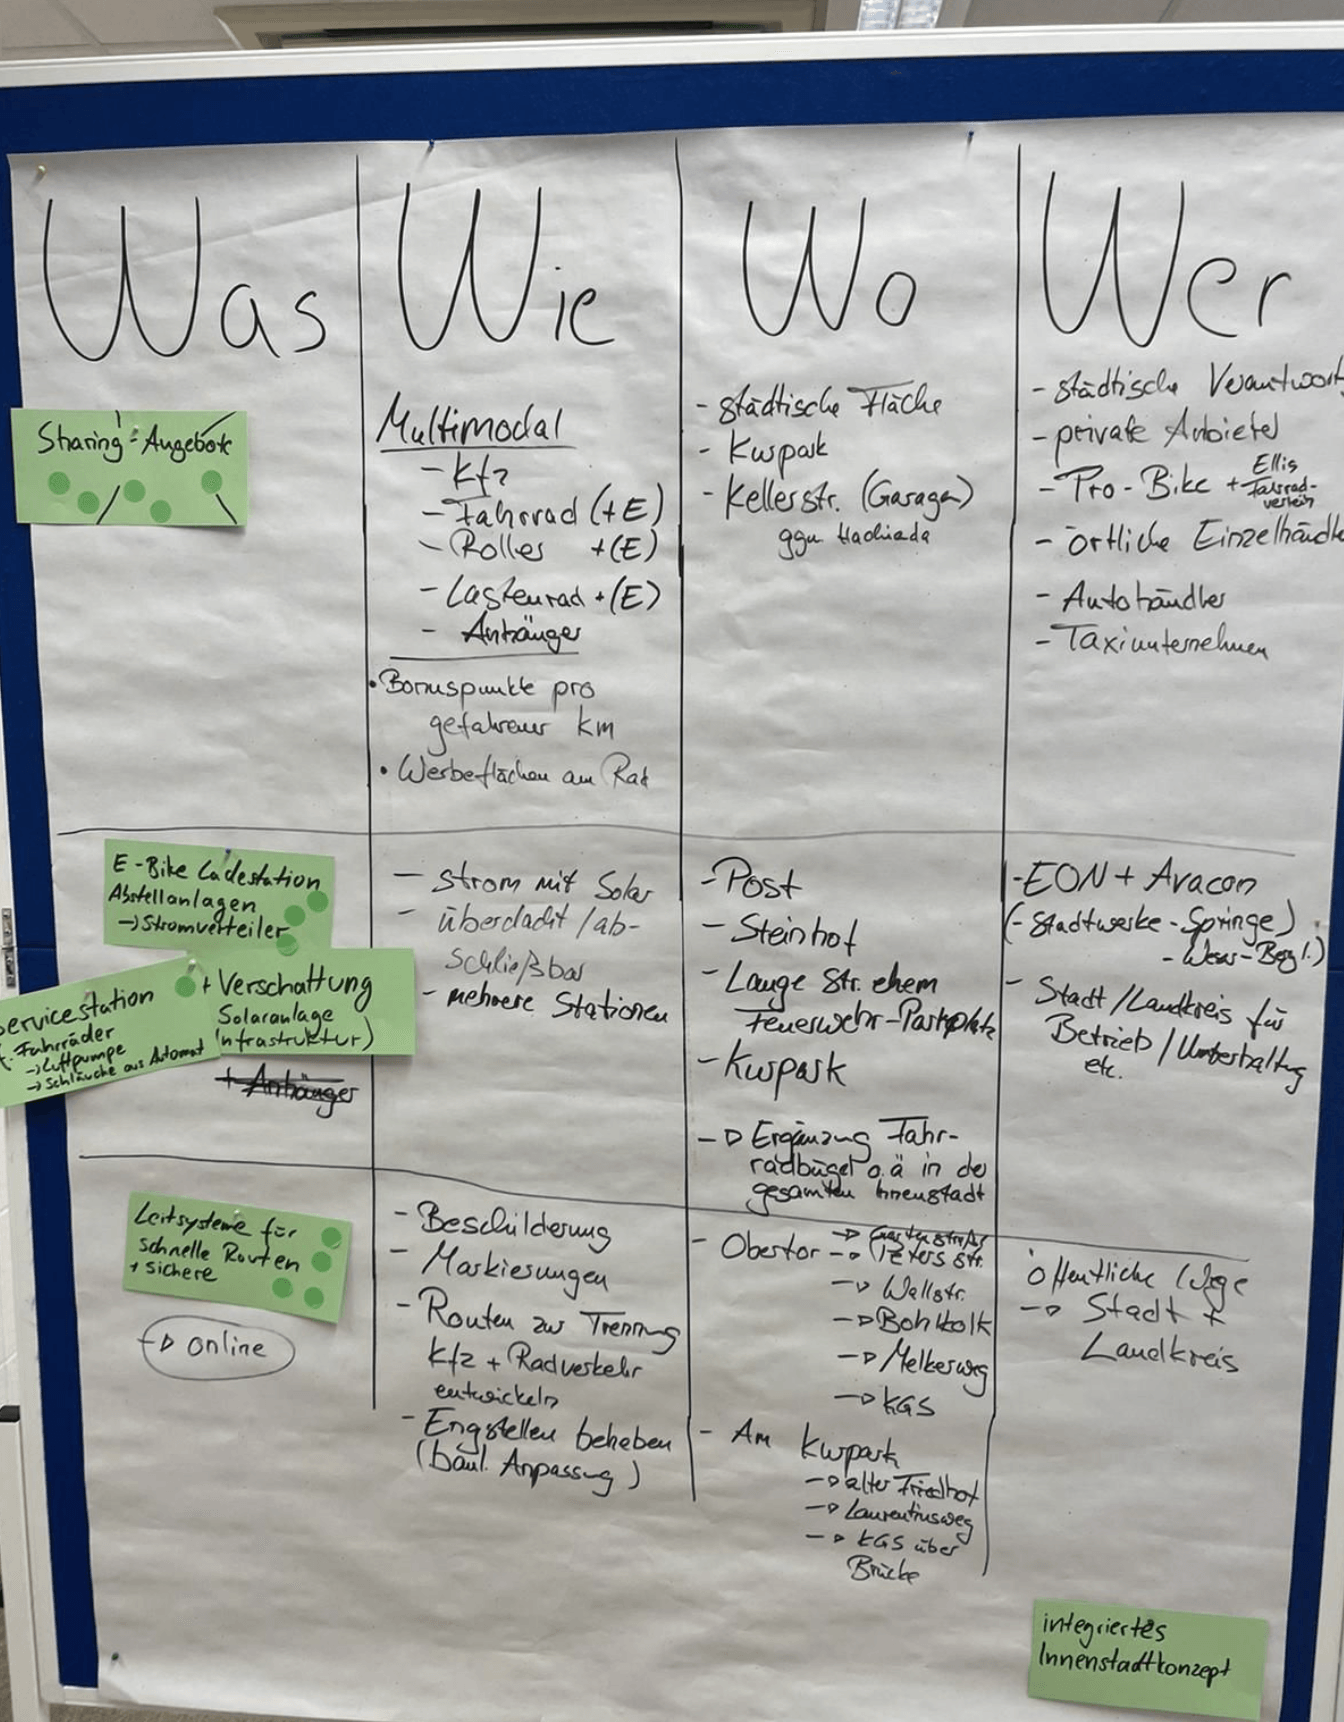 Was
Wie
Wo
Wer
Sharing-Angebote
Multimodal
- Kfz
- Fahrrad (+E)
- Roller +(E)
- Lastenrad +(E)
- Anhänger
• Bonuspunkte pro
gefahrener km
• Werbeflächen am Rad
- städtische Fläche
- Kurpark
- Kellerstr. (Garagen)
ggü.
- städtische Verantwort
- private Anbieter
- Pro-Bike + Ellis
Fahrrad-
verleih
- örtliche Einzelhändle
- Autohändler
- Taxiunternehmen
E-Bike Ladestation
Abstellanlagen
→ Stromverteiler
+ Verschattung
Solaranlage
nfrastruktur)
ervicestation
Fahrräder
→ Luftpumpe
→ Schläuche aus Automat
+ Anhänger
- Strom mit Solar
- überdacht / ab-
schließbar
- mehrere Stationen
- Post
- Steinhof
- Lange Str. ehem
Feuerwehr-Parkplatz
- Kurpark
-> Ergänzung Fahr-
radbügel o.ä in der
gesamten Innenstadt
- EON + Avacon
(- Stadtwerke - Springe)
- Weser-Bergl.)
- Stadt/Landkreis für
Betrieb / Unterhaltung
etc.
Leitsysteme für
schnelle Routen
+ sichere
-> online
- Beschilderung
- Markierungen
- Routen zur Trennung
Kfz + Radverkehr
entwickeln
- Engstellen beheben
(baul. Anpassung)
- Obertor -> Gartenstraße
-> Petersstr.
-> Wallstr.
-> Bohlkolk
-> Melkerweg
-> KGS
- Am Kurpark
-> alter Friedhof
-> Laurentiusweg
-> KGS über
Brücke
öffentliche Wege
-> Stadt +
Landkreis
integriertes
Innenstadtkonzept